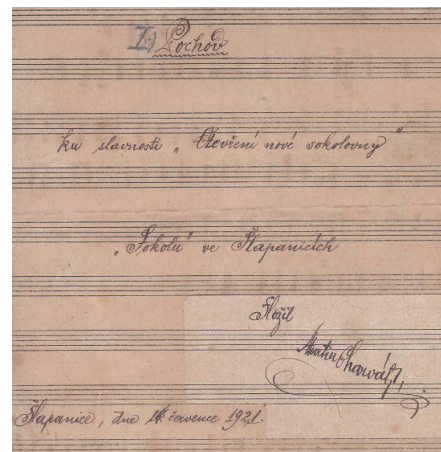 I.) Pochod
ku slavnosti „Otevření nové sokolovny"
„Sokolu" ve Šlapanicích
Složil
Martin Charvát,
Šlapanice, dne 14. července 1921.